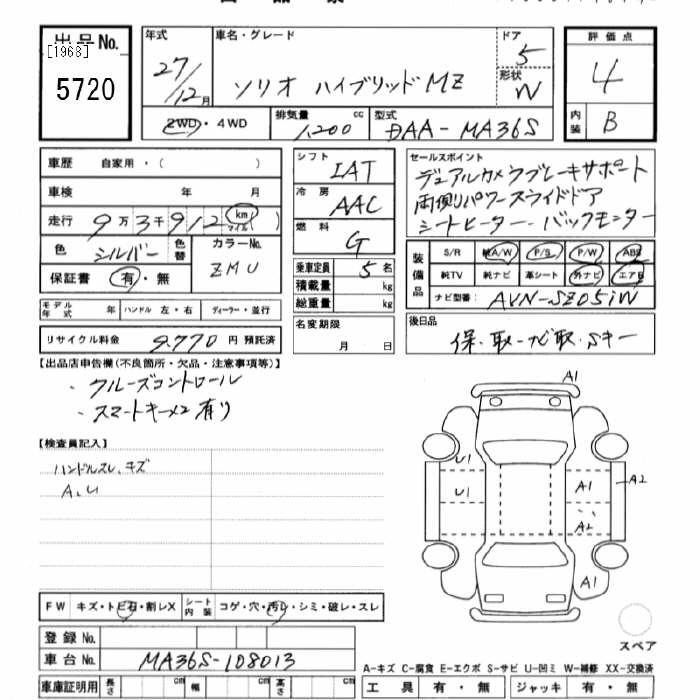 出品No.
[1968]
5720
年式
27/12月
車名・グレード
ソリオ ハイブリッドMZ
ドア
5
形状
W
評価点
4
内装
B
2WD・4WD
排気量
1,200 cc
型式
DAA-MA36S
車歴 自家用・( )
車検 年 月
走行 9万3千912 km マイル( )
色 シルバー 色替
カラーNo.
ZMU
保証書 有・無
モデル年式 年 ハンドル 左・右 ディーラー・並行
リサイクル料金 9,770 円 預託済
シフト IAT
冷房 AAC
燃料 G
乗車定員 5 名
積載量 kg
総重量 kg
名変期限
月 日
セールスポイント
デュアルカメラブレーキサポート
両側パワースライドドア
シートヒーター・バックモニター
装備品
S/R 純A/W P/S P/W ABS
純TV 純ナビ 革シート 外ナビ エアB
ナビ型番 AVN-SZ05iW
後日品
保・取・ナビ取・Sキー
【出品店申告欄(不良箇所・欠品・注意事項等)】
・クルーズコントロール
・スマートキー×2有り
【検査員記入】
ハンドルスレ、キズ
A、U
A1
U1
U1
A1
A2
A2
A1
スペア
FW キズ・トビ石・割レX シート内装 コゲ・穴・汚レ・シミ・破レ・スレ
登録No.
車台No. MA36S-108013
車庫証明用 長さ cm 幅 cm 高さ cm
A-キズ C-腐食 E-エクボ S-サビ U-凹ミ W-補修 XX-交換済
工具 有・無 ジャッキ 有・無